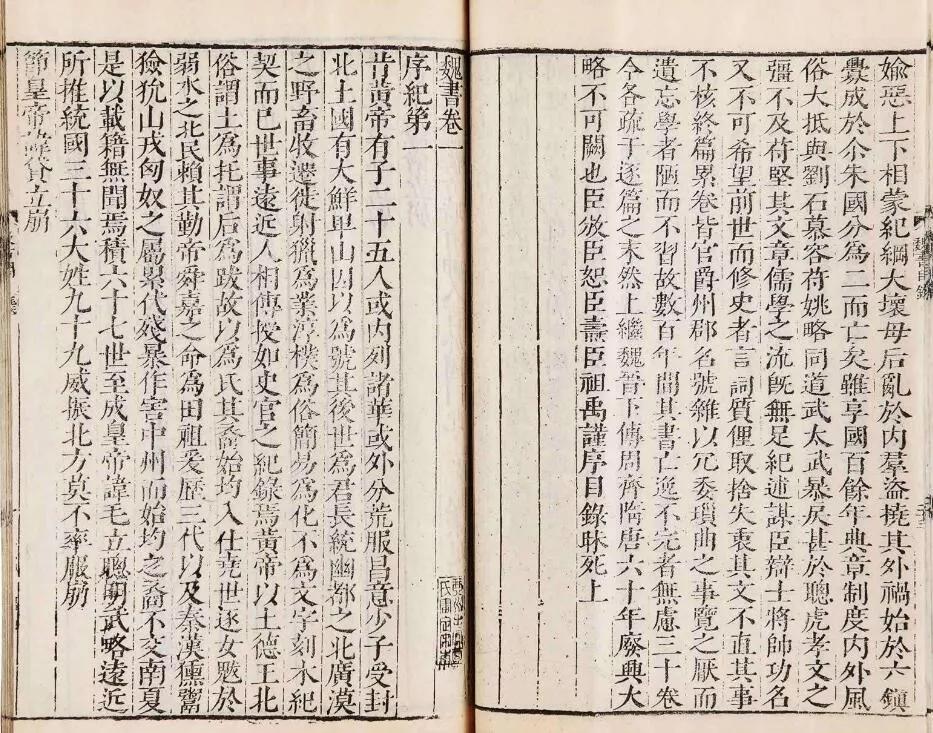 媮惡上下相蒙紀綱大壞母后亂於內羣盜撓其外禍始於六鎭
釁成於尒朱國分為二而亡矣雖享國百餘年典章制度內外風
俗大抵與劉石慕容苻姚略同道武太武暴戾甚於聰虎孝文之
彊不及苻堅其文章儒學之流旣無足紀述謀臣辯士將帥功名
又不可希望前世而修史者言詞質俚取捨失衷其文不直其事
不核終篇累卷皆官爵州郡名號雜以冗委瑣曲之事覽之厭而
遺忘學者陋而不習故數百年間其書亡逸不完者無慮三十卷
今各疏于逐篇之末然上繼魏晉下傳周齊隋唐六十年廢興大
略不可闕也臣攽臣恕臣燾臣祖禹謹序目錄昧死上
魏書卷一
序紀第一
昔黃帝有子二十五人或內列諸華或外分荒服昌意少子受封
北土國有大鮮卑山因以為號其後世為君長統幽都之北廣漠
之野畜牧遷徙射獵為業淳樸為俗簡易為化不為文字刻木紀
契而已世事遠近人相傳授如史官之紀錄焉黃帝以土德王北
俗謂土為托謂后為跋故以為氏其裔始均入仕堯世逐女魃於
弱水之北民賴其勤帝舜嘉之命為田祖爰歷三代以及秦漢獯鬻
獫狁山戎匈奴之屬累代殘暴作害中州而始均之裔不交南夏
是以載籍無聞焉積六十七世至成皇帝諱毛立聰明武略遠近
所推統國三十六大姓九十九威振北方莫不率服崩
節皇帝諱貸立崩